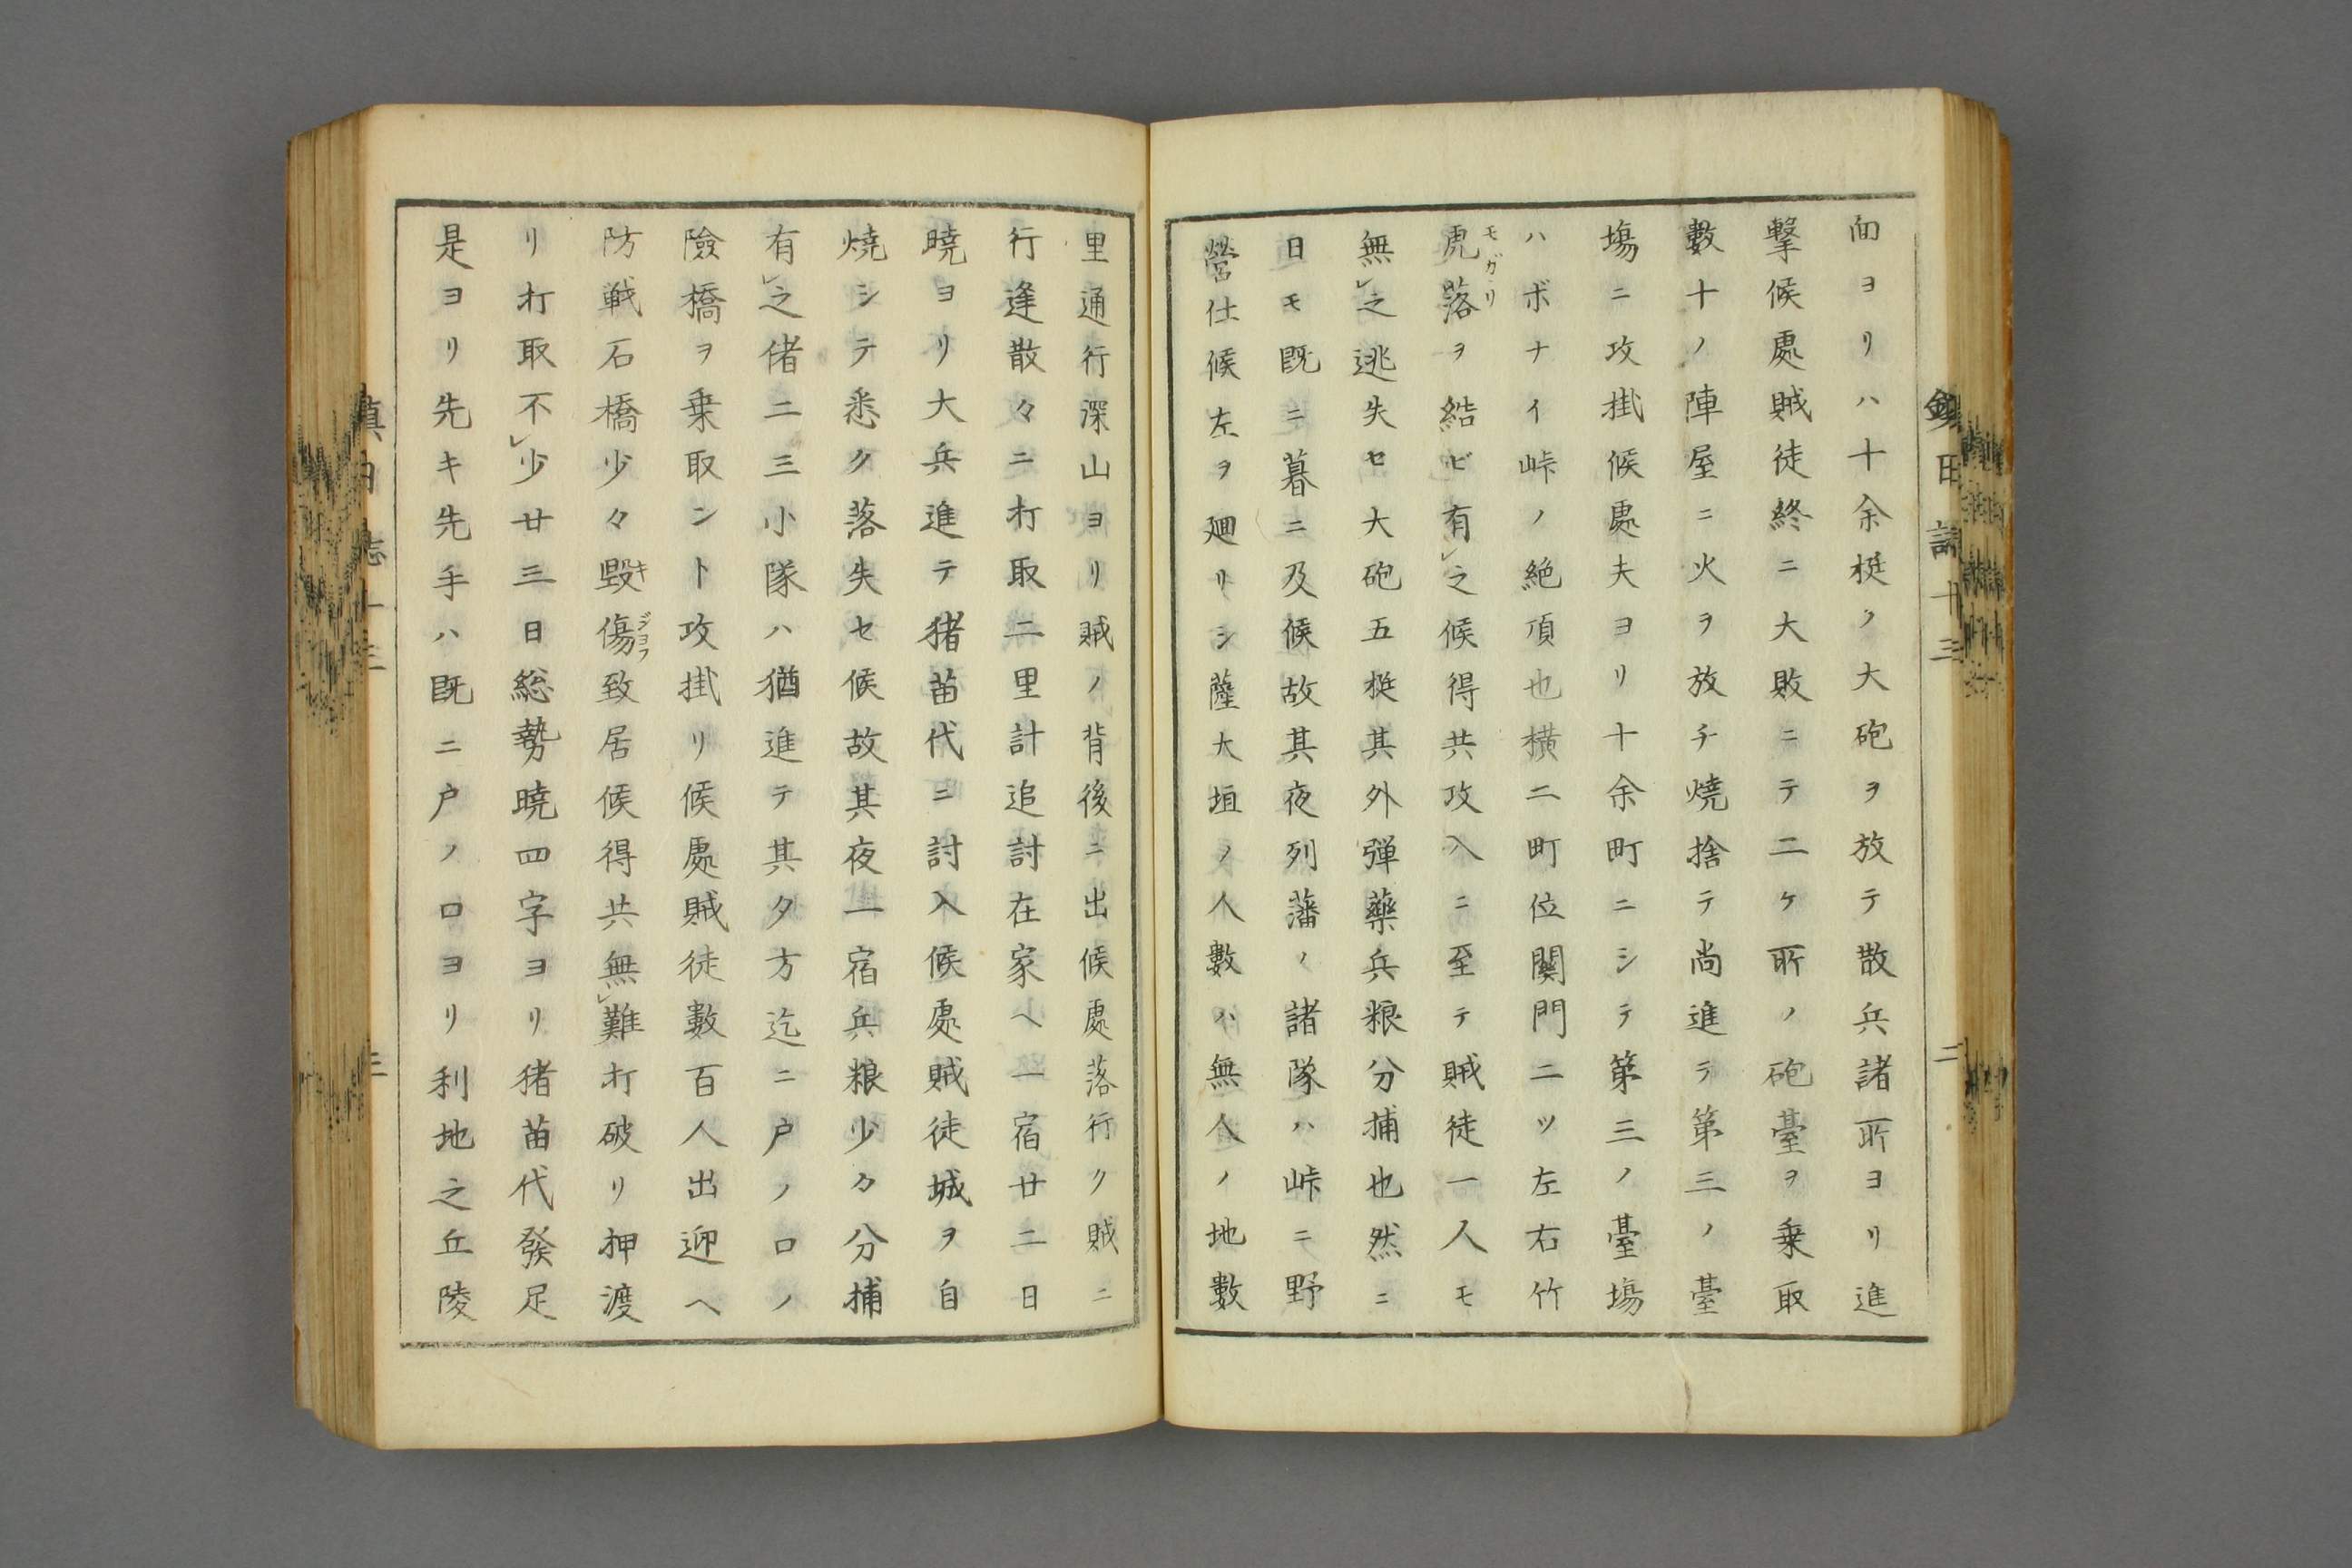 面ヨリハ十余挺ノ大砲ヲ放テ散兵諸所ヨリ進
撃候處賊徒終ニ大敗ニテ二ケ所ノ砲臺ヲ乗取
數十ノ陣屋ニ火ヲ放チ焼捨テ尚進テ第三ノ臺
塲ニ攻掛候處夫ヨリ十余町ニシテ第三ノ臺塲
ハボナイ峠ノ絶頂也横二町位關門二ツ左右竹
虎落ヲ結ビ有レ之候得共攻入ニ至テ賊徒一人モ
モガリ
無レ之逃失セ大砲五挺其外弾藥兵粮分捕也然ニ
日モ既ニ暮ニ及候故其夜列藩ノ諸隊ハ峠ニ野
營仕候左ヲ廻リシ薩大垣ノ人數ハ無人ノ地數
里通行深山ヨリ賊ノ背後ニ出候處落行ク賊ニ
行逢散々ニ打取二里計追討在家へ一宿廿二日
曉ヨリ大兵進テ猪苗代ニ討入候處賊徒城ヲ自
焼シテ悉ク落失セ候故其夜一宿兵粮少々分捕
有レ之偖二三小隊ハ猶進テ其夕方迄ニ戸ノ口ノ
險橋ヲ乗取ント攻掛リ候處賊徒數百人出迎へ
防戦石橋少々毀傷致居候得共無レ難打破リ押渡
キジヨフ
リ打取不レ少廿三日総勢曉四字ヨリ猪苗代發足
是ヨリ先キ先手ハ既ニ戸ノ口ヨリ利地之丘陵
鎮日誌十三
二
鎮日誌十三
三